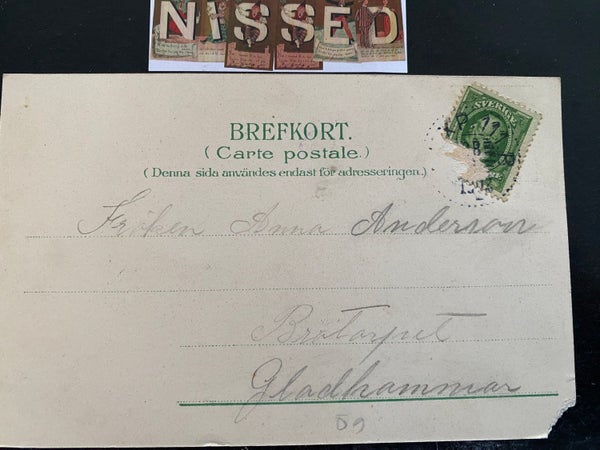 NISSED
BREFKORT.
(Carte postale.)
(Denna sida användes endast för adresseringen.)
SVERIGE
Fröken Anna Anderson
Brötorpet
Gladhammar
59